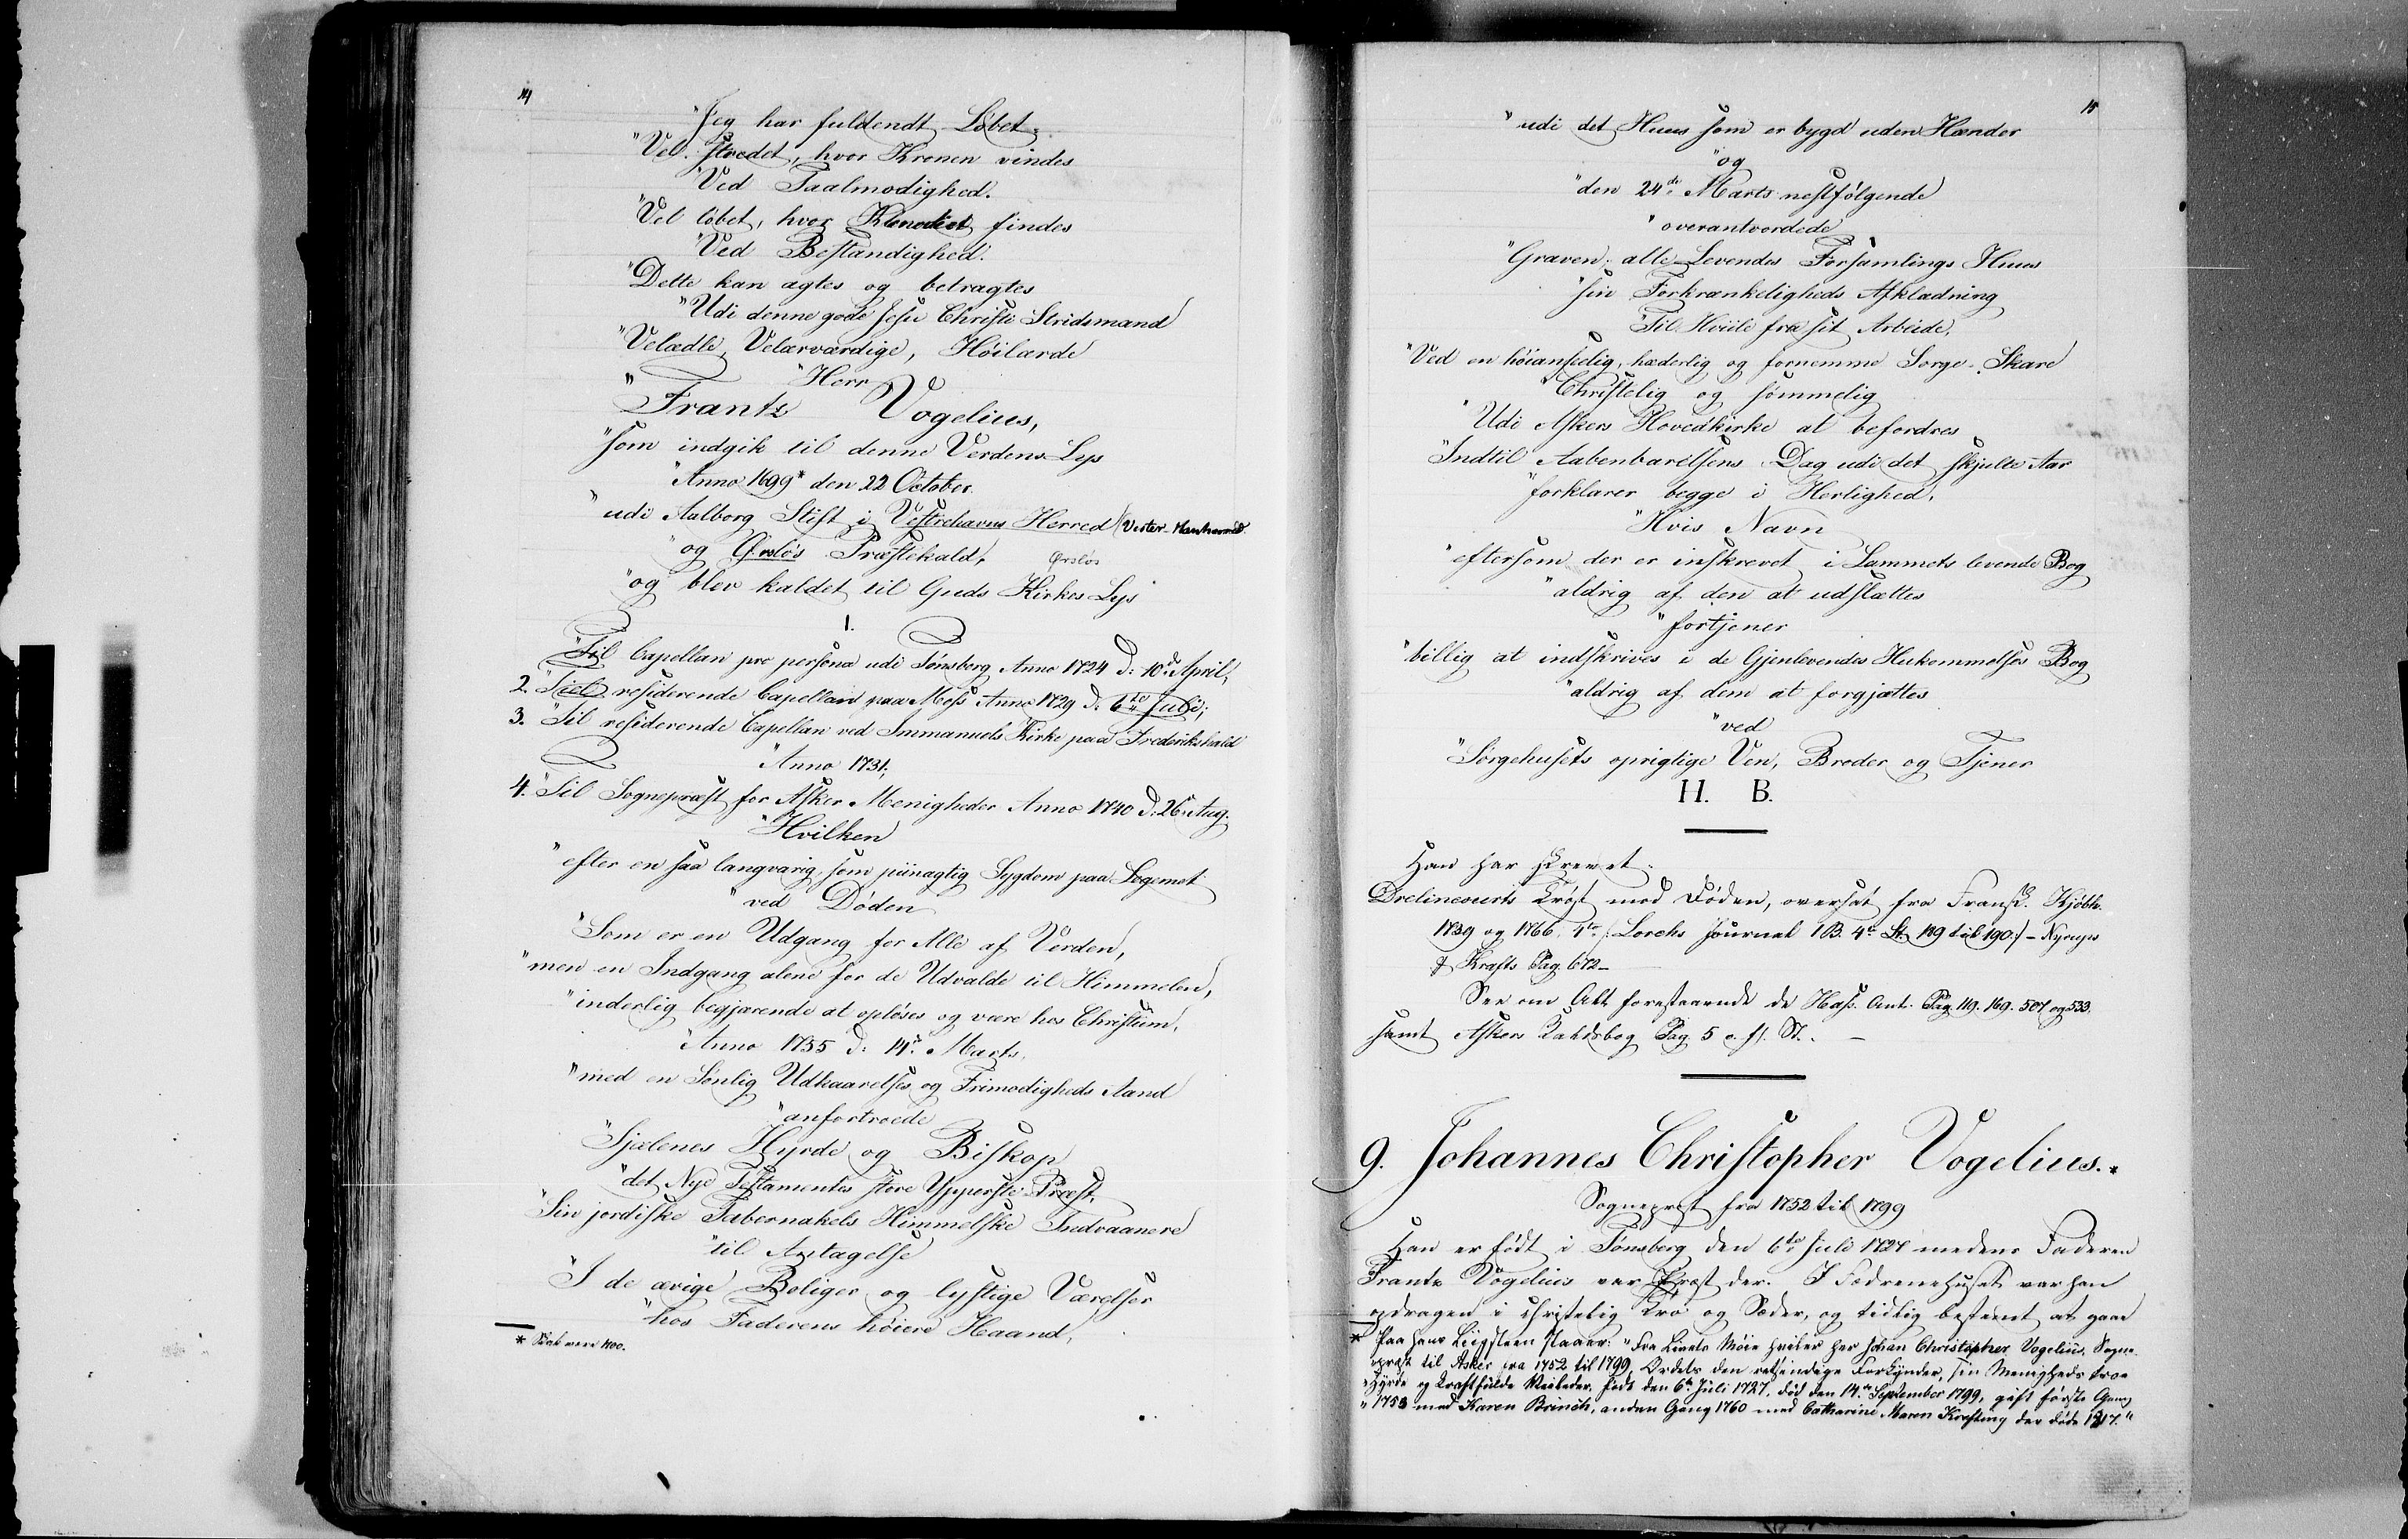 14
"Jeg har fuldendt Løbet.
"Vel stredet, hvor Kronen vindes
"Ved Taalmodighed.
"Vel løbet, hvor Klenodiet findes
"Ved Bestandighed.
"Dette kan agtes og betragtes
"Udi denne gode Jesu Christi Stridsmand
"Velædle, Velærværdige, Høilærde
"Herr
"Frantz Vogelius,
"som indgik til denne Verdens Lys
"Anno 1699* den 22 October
"udi Aalborg Stift i Vestrehavns Herred (Vester-Hanherred
"og Ørsløs Præstekald,
Ørsløs
"og blev kaldet til Guds Kirkes Lys
1.
"Til Capellan pro persona udi Tønsberg Anno 1724 d: 10de April,
2. "Til residerende Capellan paa Moss Anno 1729 d: 6te Juli;
3. "Til residerende Capellan ved Immanuels Kirke paa Frederikshald
"Anno 1731;
4. "Til Sognepræst for Asker Menigheder Anno 1740 d: 26de Aug.
"Hvilken
"efter en saa langvarig, som piinagtig Sygdom paa Legemet
"ved Døden
"Som er en Udgang for Alle af Verden,
"men en Indgang alene for de Udvalde til Himmelen,
"inderlig begjærende at opløses og være hos Christum,
"Anno 1755 d: 14de Marts,
"med en Sønlig Udkaarelses og Frimodigheds Aand
"anfortroede
"Sjælenes Hyrde og Biskop
"det Nye Testamentes store Ypperste Præst,
"Sin jordiske Tabernakels Himmelske Indvaanere
"til Antagelse
"I de ævige Boliger og lystige Værelser
"hos Faderens høiere Haand,
* Skal være 1700.
15
"udi det Huus som er bygd uden Hænder
"og
"den 24de Marts nestfølgende
"overantvordede
"Graven, alle Levendes Forsamlings Huus
"sin Forkrænkeligheds Afklædning
"Til Hviile fra sit Arbeide,
"Ved en høianseelig, hæderlig og fornemme Sorge-Skare
"Christelig og sømmelig
"Udi Askers Hovedkirke at befordres
"Indtil Aabenbarelsens Dag udi det skjulte Aar
"forklarer begge i Herlighed,
"Hvis Navn
"eftersom der er inskrevet i Lammets levende Bog
"aldrig af den at udslættes
"fortjener
"billig at indskrives i de Gjenlevendes Hukommelses Bog
"aldrig af dem at forgjættes
"ved
"Sørgehusets oprigtige Ven, Broder og Tjener
H. B.
Han har skrevet:
Drelincourts Trøst mod Døden, oversat fra Fransk. Kjøbh.
1739 og 1766. 4to (: Lorchs Journal 1 B. 4de St. 189 til 190 :) - Nyerups
& Krafts Pag. 672 -
See om Alt forestaaende de Hass. Ant. Pag. 119. 169. 507 og 533.
samt Askers Kaldsbog Pag. 5 o. fl. St. -
9. Johannes Christopher Vogelius. *
Sognepræst fra 1752 til 1799
Han er født i Tønsberg den 6te Juli 1727 medens Faderen
Frantz Vogelius var Præst der. I Fædrenehuset var han
opdragen i christelig Tro og Sæder, og tidlig bestemt at gaae
* Paa hans Liigsteen staaer: "Fra Livets Møie hviler her Johan Christopher Vogelius, Sogne-
"præst til Asker fra 1752 til 1799, Ordets den retsindige Forkynder, sin Menigheds troe
"Hyrde og kraftfulde Veileder, født den 6te Juli 1727, død den 14de September 1799, gift første Gang
"1753 med Karen Brinch, anden Gang 1760 med Catharine Maren Krefting der døde 1817."